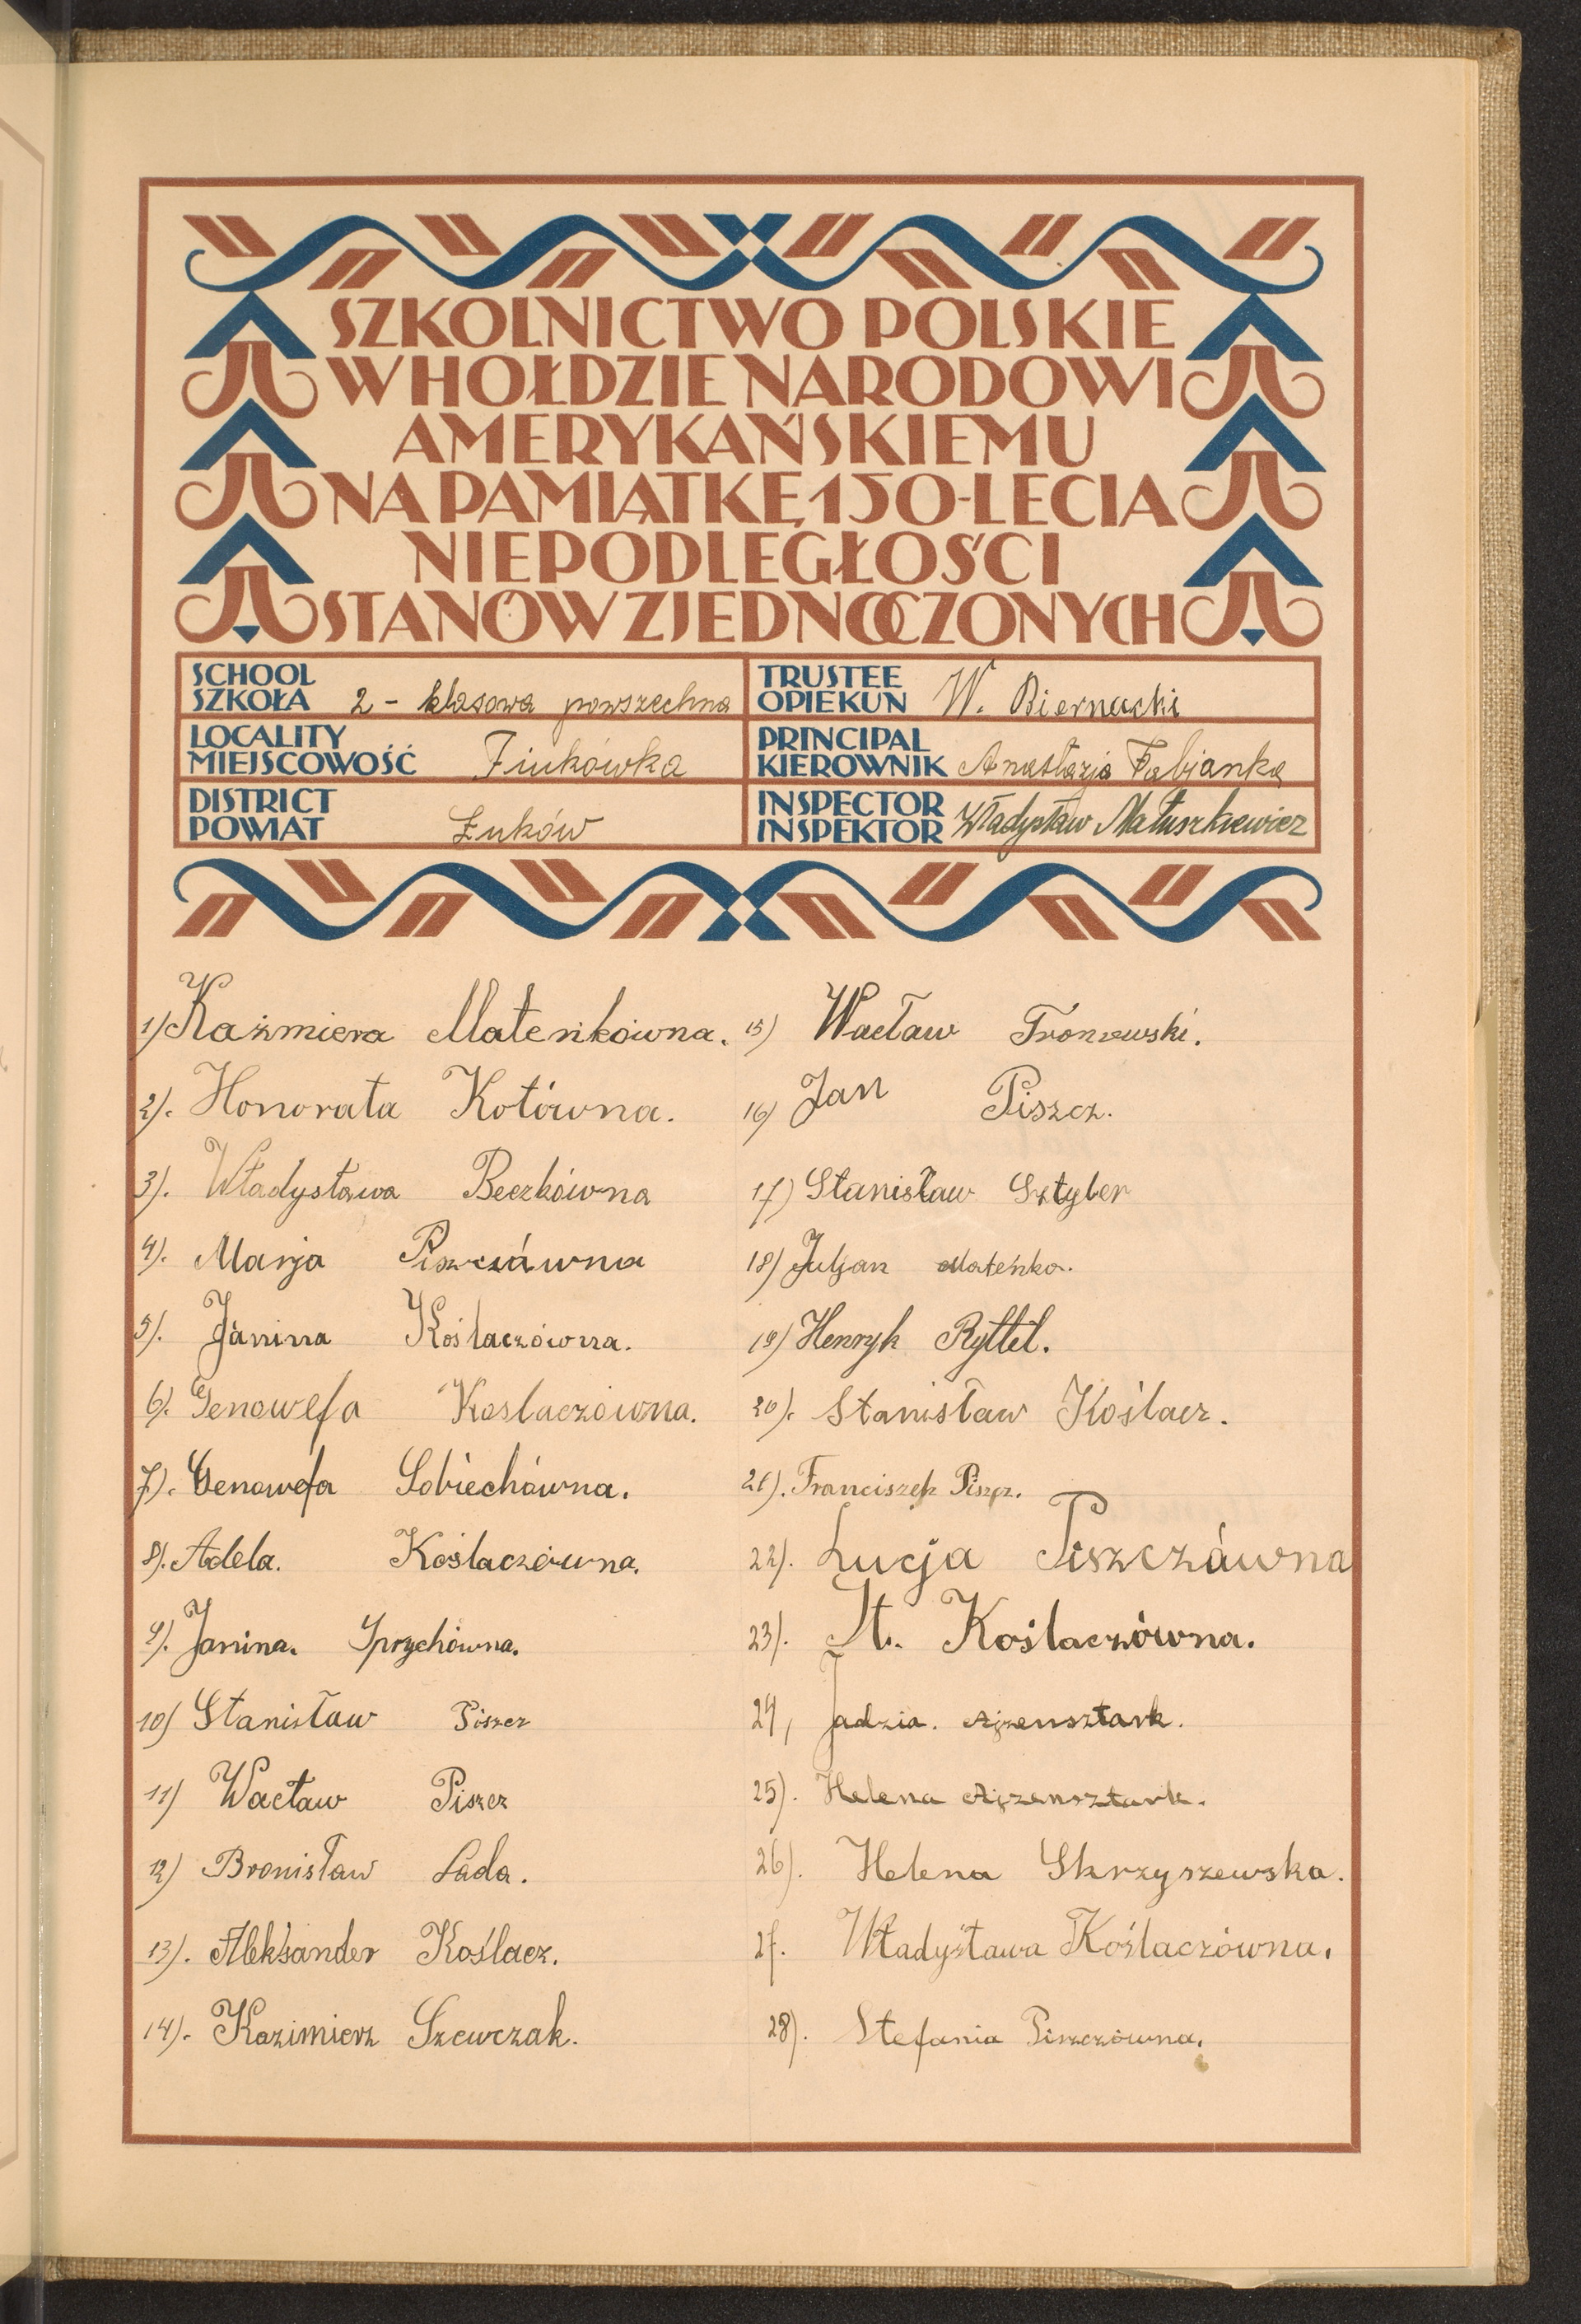 SZKOLNICTWO POLSKIE
W HOŁDZIE NARODOWI
AMERYKAŃSKIEMU
NA PAMIĄTKĘ 150-LECIA
NIEPODLEGŁOŚCI
STANÓW ZJEDNOCZONYCH
SCHOOL
SZKOŁA 2 - klasowa powszechna
TRUSTEE
OPIEKUN W. Biernacki
LOCALITY
MIEJSCOWOŚĆ Fiukówka
PRINCIPAL
KIEROWNIK Anastazja Fabjanka
DISTRICT
POWIAT Łuków
INSPECTOR
INSPEKTOR Władysław Matuszkiewicz
1) Kaźmiera Mateńkówna.
2). Honorata Kotówna.
3). Władysława Beczkówna
4). Marja Piszczówna
5). Janina Koślaczówna.
6). Genowefa Koslaczówna.
7). Genowefa Sobiechówna.
8). Adela. Koślaczówna.
9). Janina. Sprzychówna.
10) Stanisław Piszcz
11) Wacław Piszcz
12) Bronisław Łada.
13). Aleksander Koślacz.
14). Kazimierz Szewczak.
15) Wacław Tronzewski.
16) Jan Piszcz.
17) Stanisław Sztyber
18) Juljan Mateńko.
19) Henryk Ryttel.
20). Stanisław Koślacz.
21). Franciszek Piszcz.
22). Łucja Piszczówna
23). St. Koślaczówna.
24, Jadzia. Ajzensztark.
25). Helena Ajzensztark.
26). Helena Skrzyszewska.
27. Władysława Koślaczówna.
28). Stefania Piszczówna.